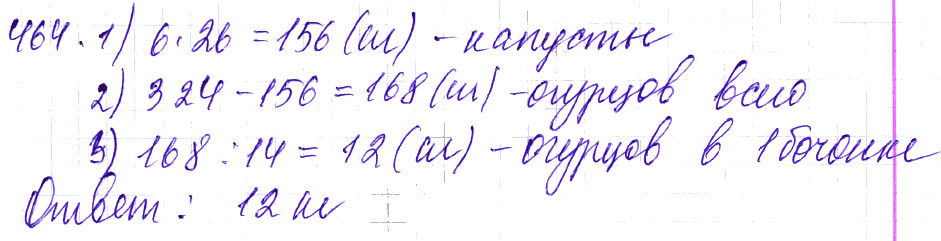 464. 1) 6 · 26 = 156 (кг) - капусты
2) 324 - 156 = 168 (кг) - огурцов всего
3) 168 : 14 = 12 (кг) - огурцов в 1 бочонке
Ответ: 12 кг